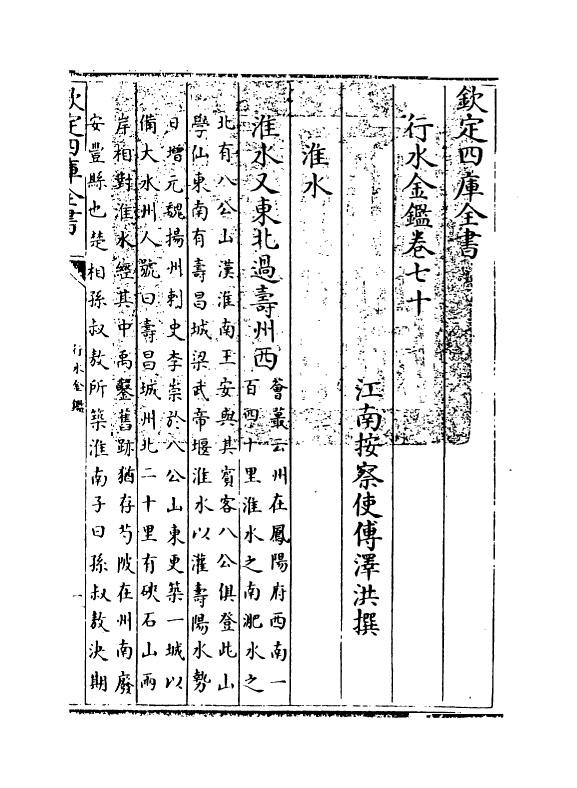 欽定四庫全書
行水金鑑卷七十
江南按察使傅澤洪撰
淮水
淮水又東北過壽州西
薈蕞云州在鳳陽府西南一
百四十里淮水之南淝水之
北有八公山漢淮南王安與其賓客八公俱登此山
學仙東南有壽昌城梁武帝堰淮水以灌壽陽水勢
日增元魏揚州刺史李崇於八公山東更築一城以
備大水州人號曰壽昌城州北二十里有硤石山兩
岸相對淮水經其中禹鑿舊跡猶存芍陂在州南廢
安豐縣也楚相孫叔敖所築淮南子曰孫叔敖決期
欽定四庫全書
行水金鑑
一